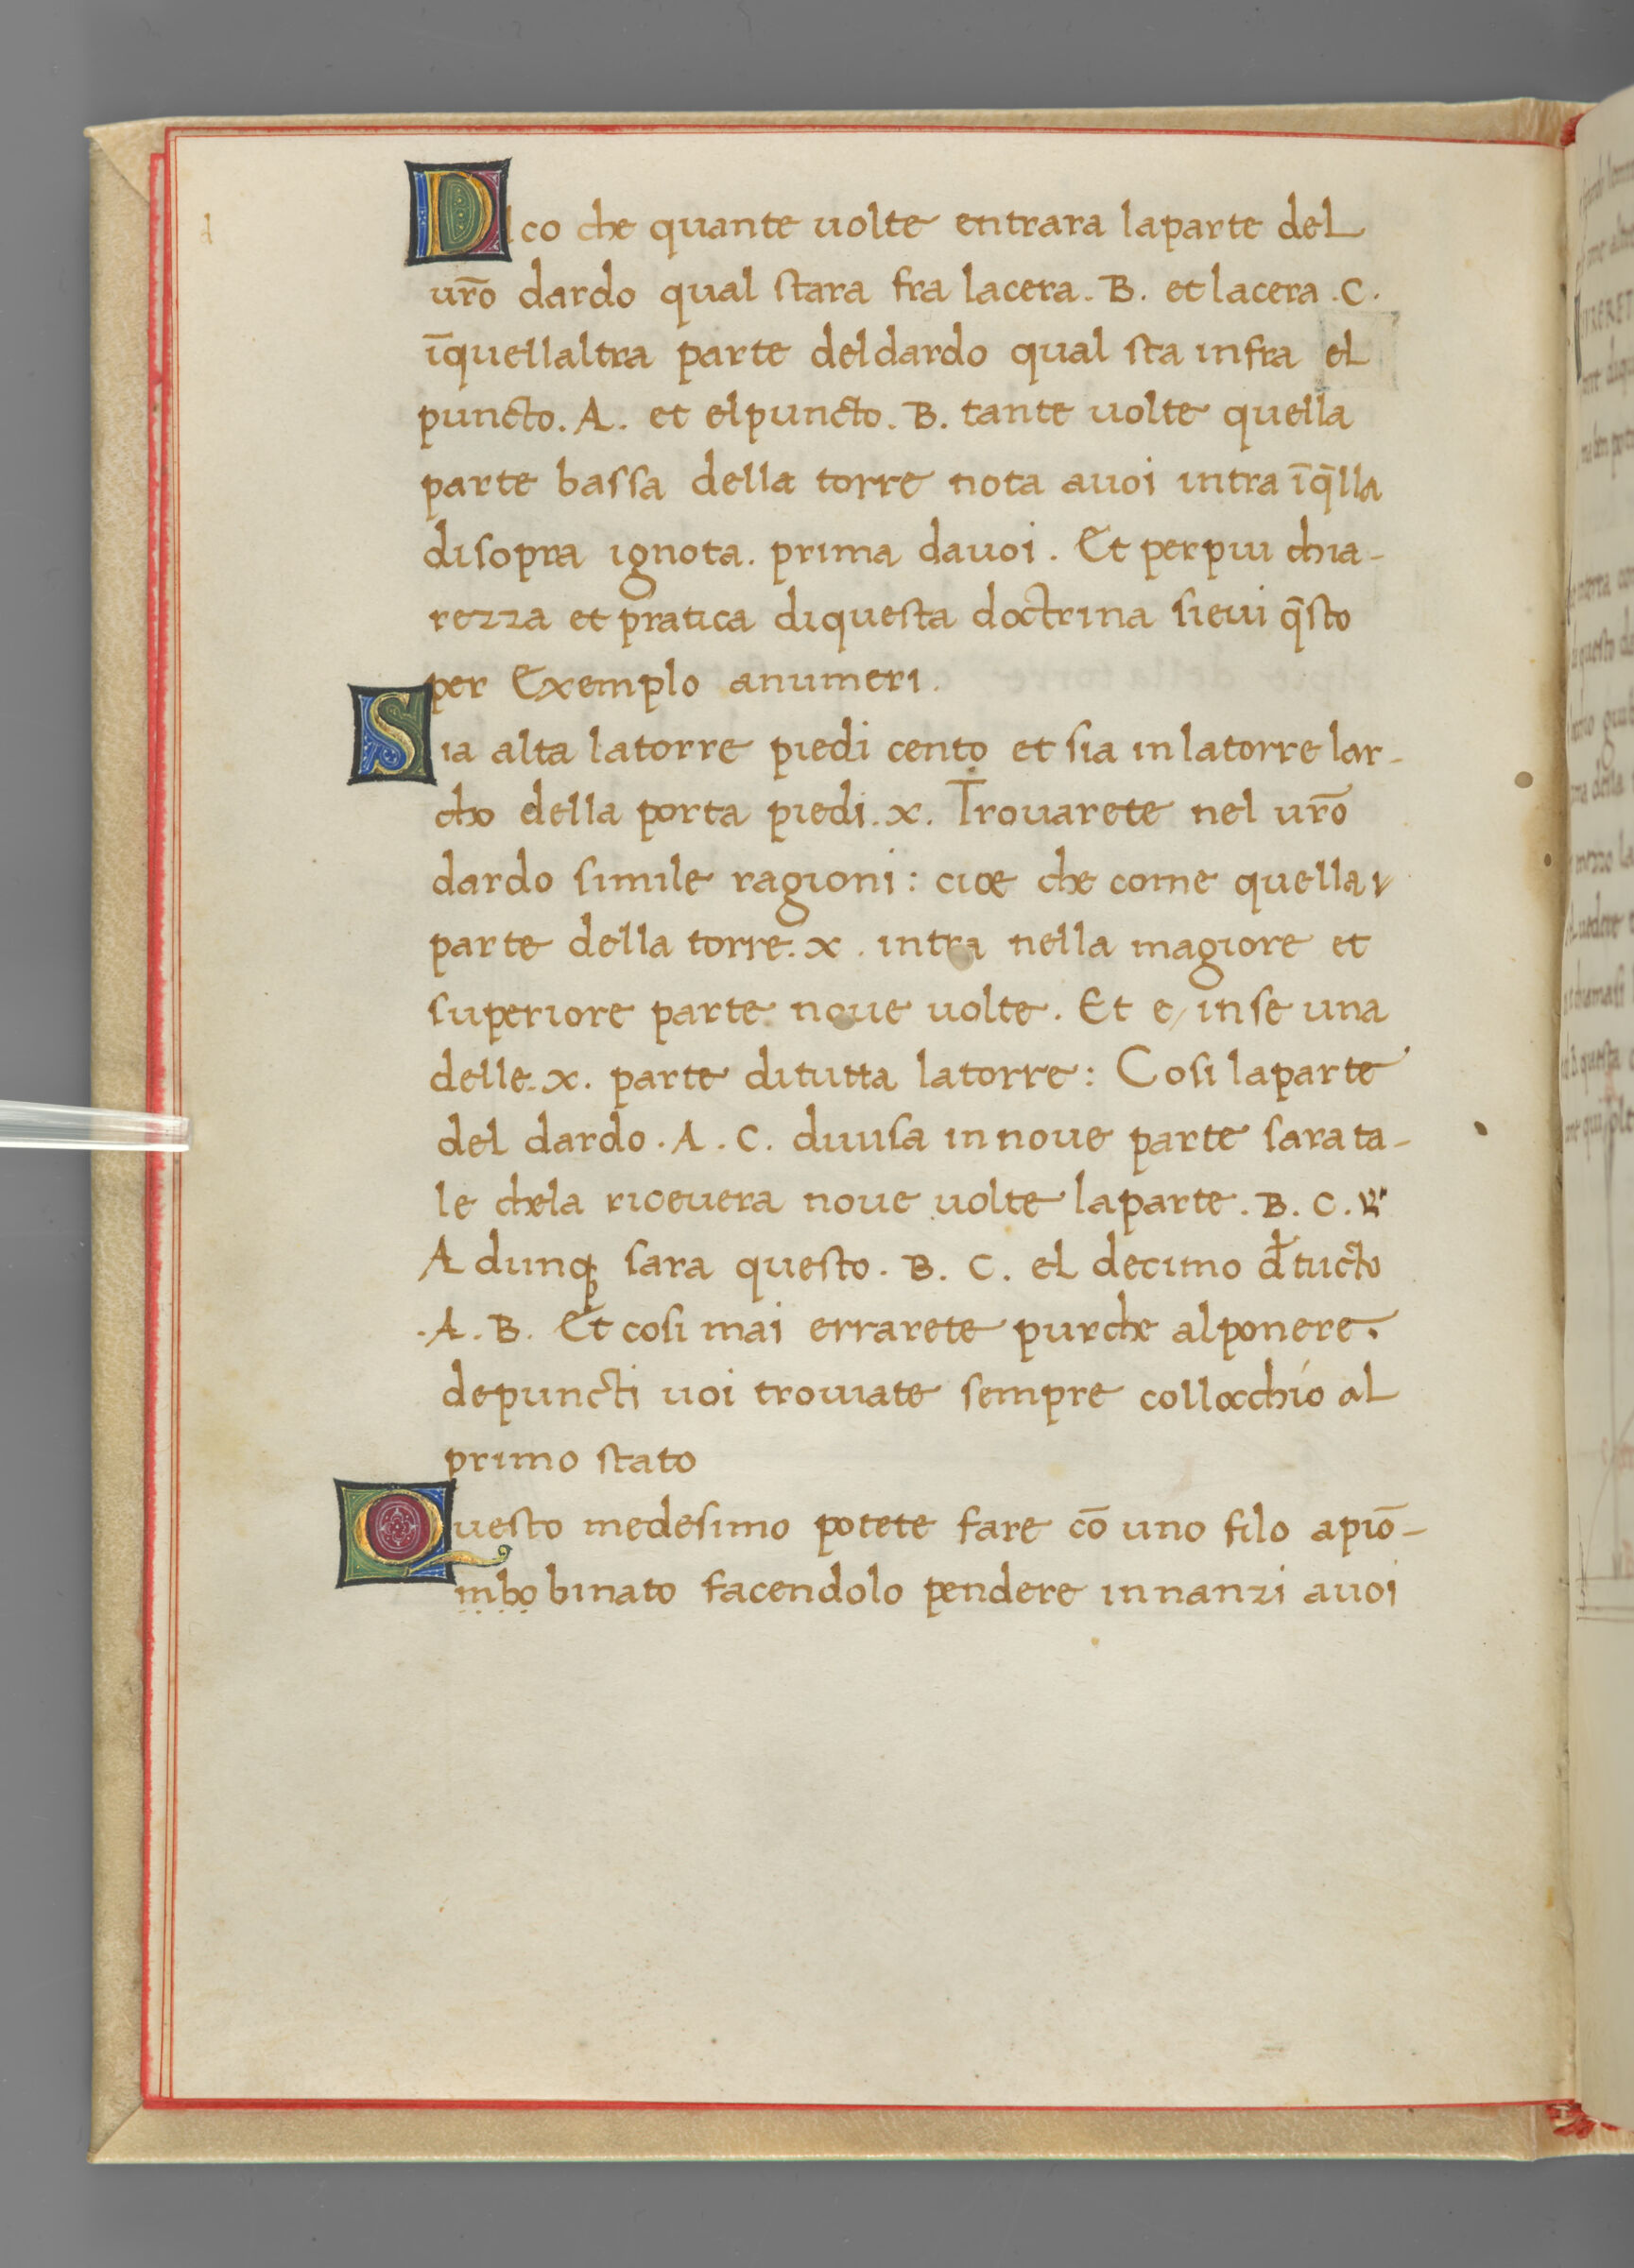 d
Dico che quante uolte entrara laparte del
ur̄o dardo qual stara fra lacera. B. et lacera .C.
īquellaltra parte deldardo qual sta infra el
puncto. A. et elpuncto. B. tante uolte quella
parte bassa della torre nota auoi intra īq̄lla
disopra ignota. prima dauoi. Et perpiu chia-
rezza et pratica diquesta doctrina sieui q̄sto
per Exemplo anumeri.
Sia alta latorre piedi cento et sia inlatorre lar-
cho della porta piedi. x. Trouarete nel ur̄o
dardo simile ragioni: cioe che come quella
parte della torre. x. intra nella magiore et
superiore parte noue uolte. Et e/ inse una
delle. x. parte ditutta latorre: Cosi laparte
del dardo. A. C. diuisa innoue parte sara ta-
le chela riceuera noue uolte laparte. B. C.
Adunqꝫ sara questo. B. C. el decimo đ tucto
.A. B. Et cosi mai errarete purche alponere.
depuncti uoi trouiate sempre collochio al
primo stato
Questo medesimo potete fare cō uno filo apiō-
mbobinato facendolo pendere innanzi auoi